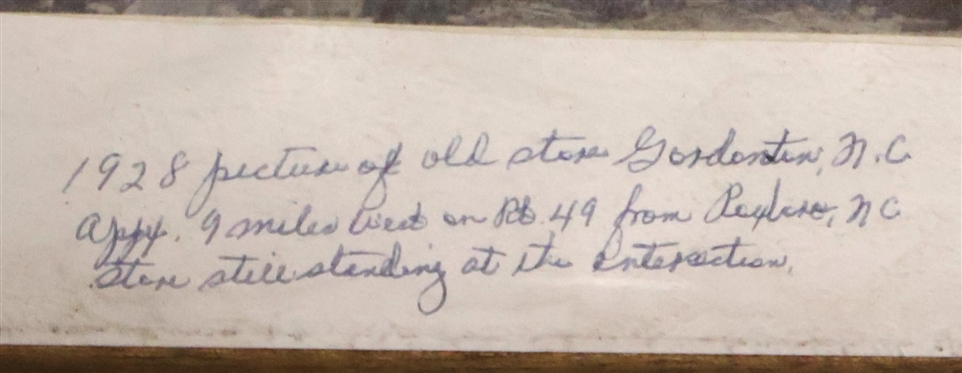 1928 picture of old store Gordonton, N.C.
Appx. 9 miles West on Rt. 49 from Roxboro, NC
Store still standing at the intersection.